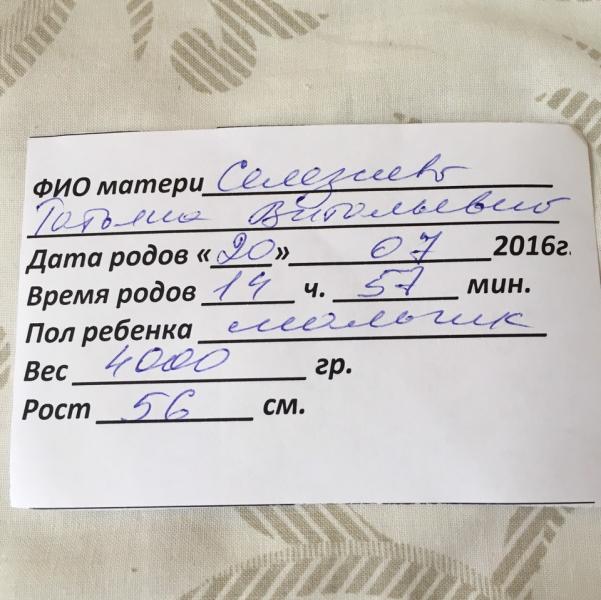 ФИО матери Селезнева
Татьяна Витальевна
Дата родов «20» 07 2016г.
Время родов 14 ч. 57 мин.
Пол ребенка мальчик
Вес 4000 гр.
Рост 56 см.